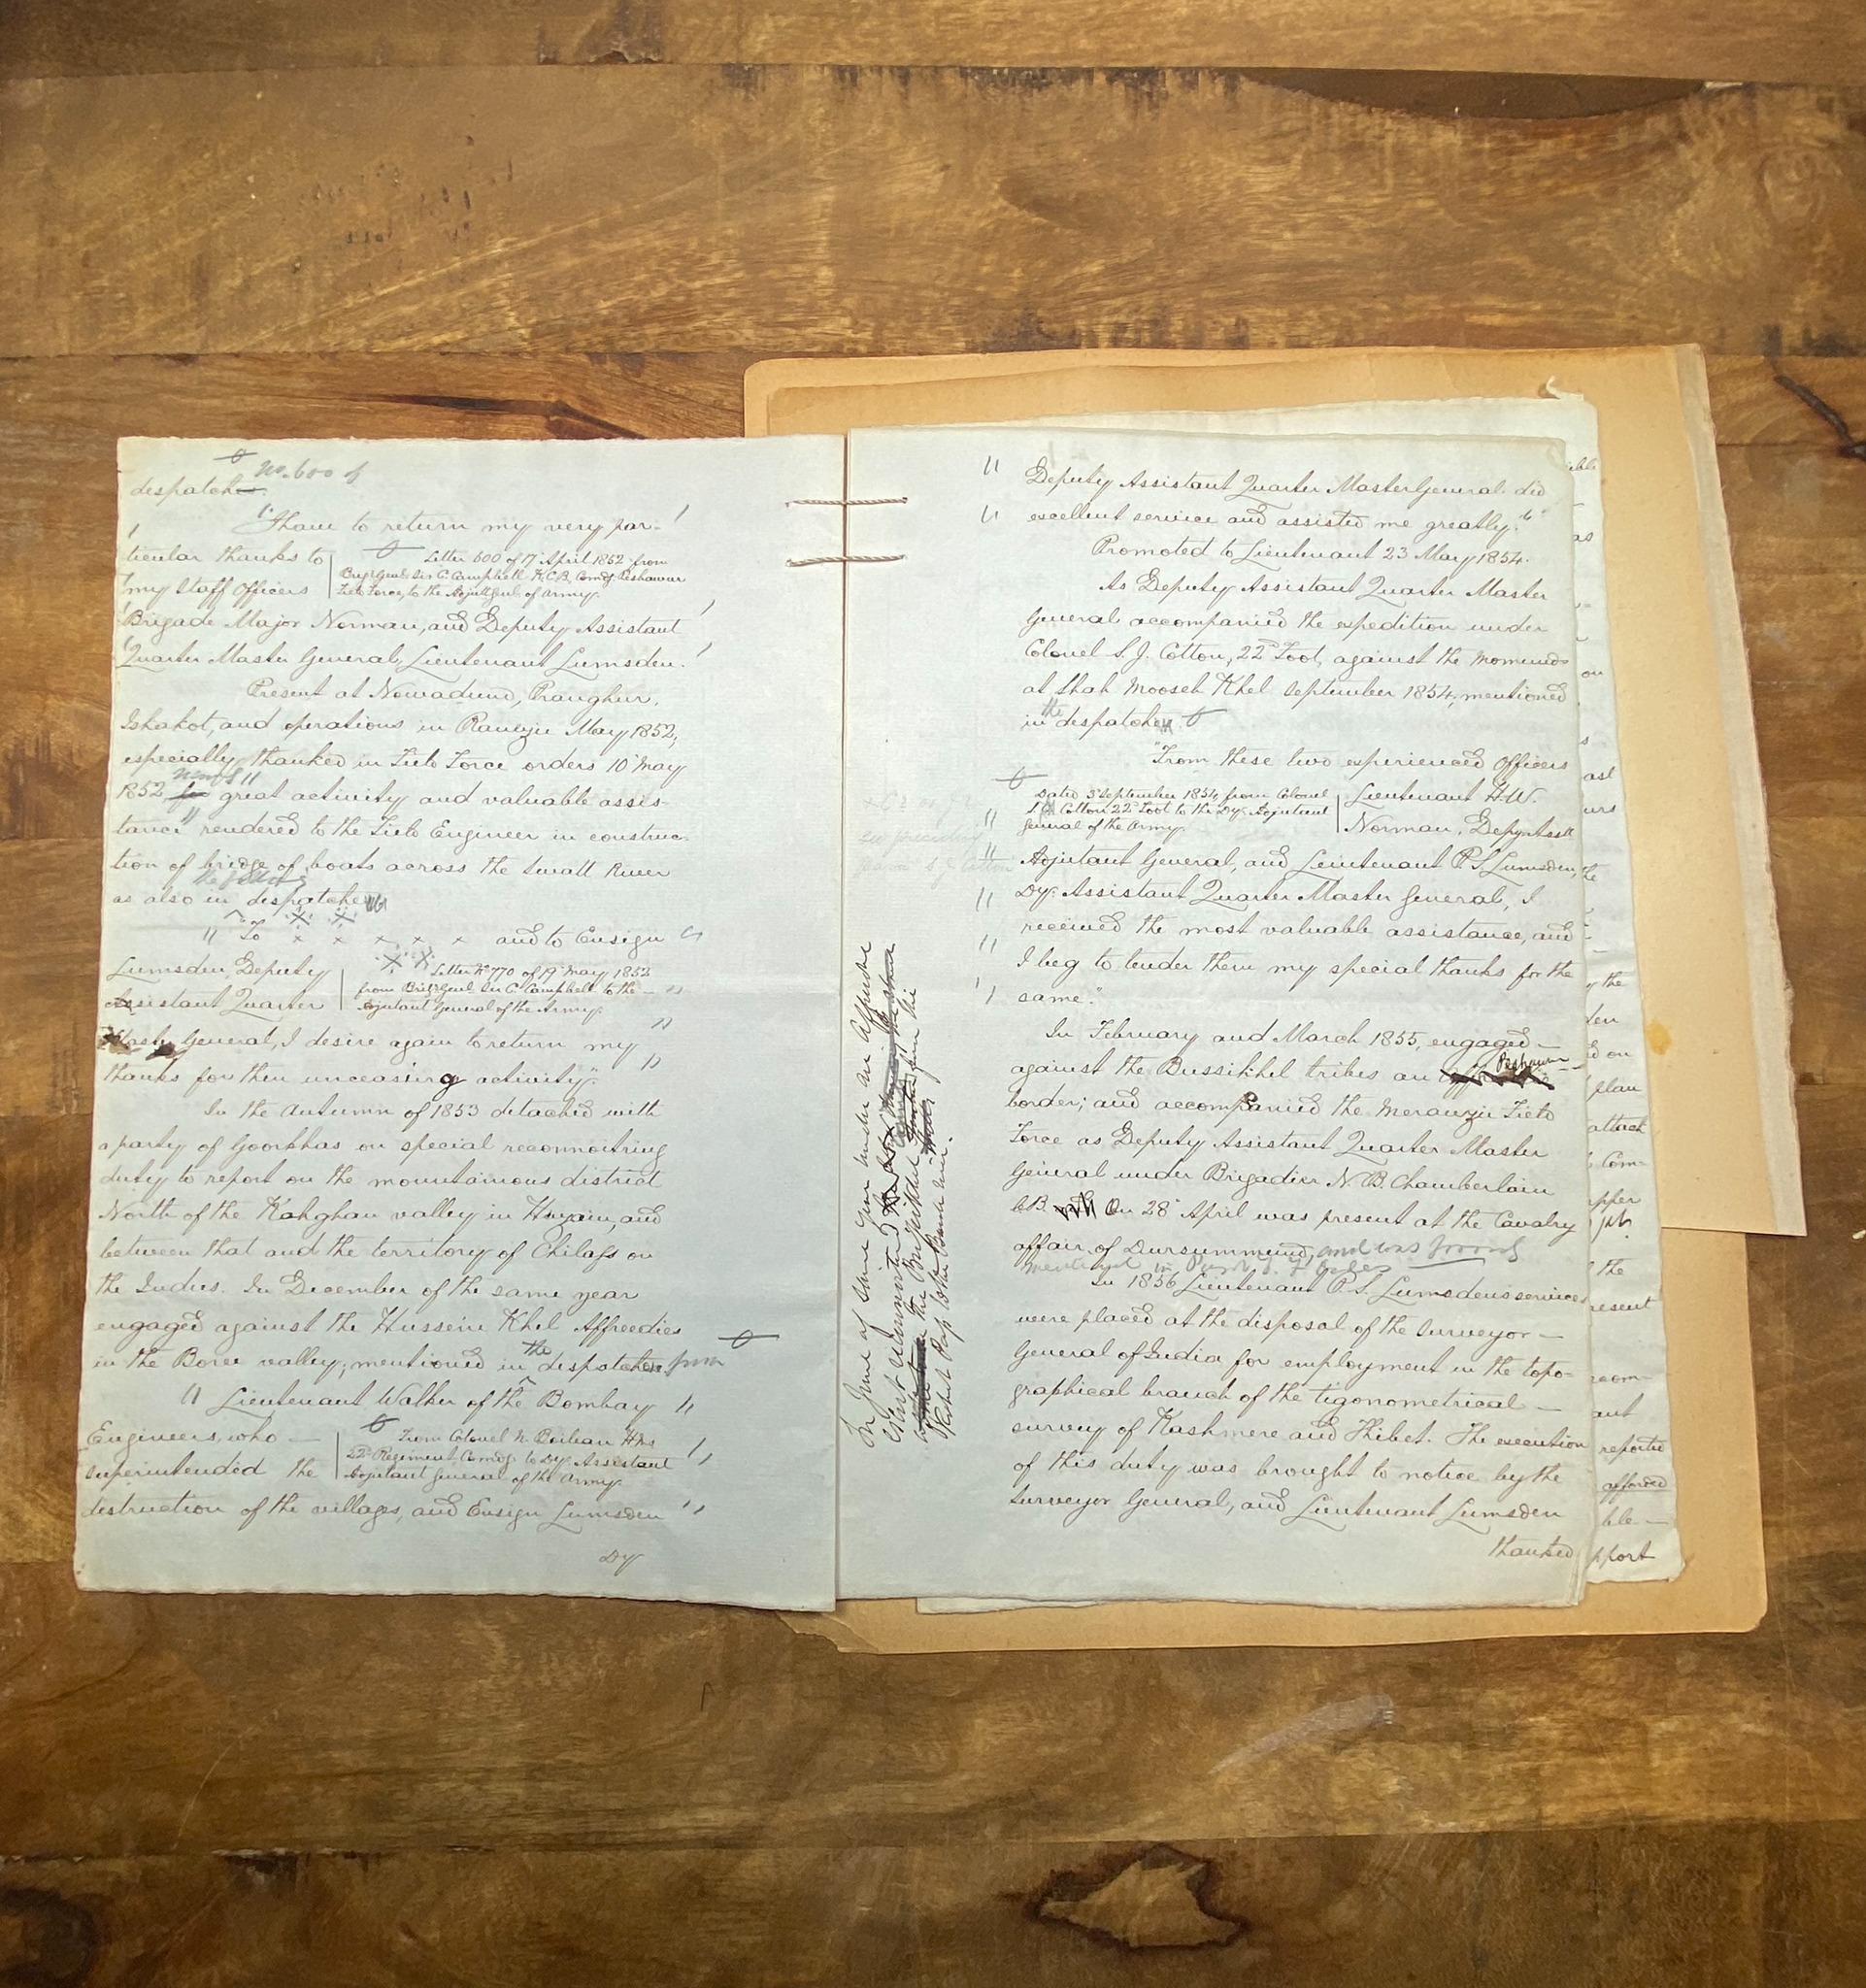 No. 600 of
despatch
"I have to return my very par-
ticular thanks to
my Staff Officers
Letter 600 of 17 April 1852 from
Brigr Genl Sir C. Campbell K.C.B. Comdg Peshawur
Field Force, to the Adjutt Genl of Army.
Brigade Major Norman, and Deputy Assistant
Quarter Master General, Lieutenant Lumsden.
Present at Nowadund, Pranghur,
Iskakot, and operations in Ranizu May 1852,
especially thanked in Field Force orders 10 May
1852 for great activity and valuable assis-
tance" rendered to the Field Engineer in construc-
tion of bridge of boats across the Swatt River
the following
as also in despatch
" To x x x x x and to Ensign
Lumsden, Deputy
Assistant Quarter
Letter No 770 of 19 May 1852
from Brigr Genl Sir C. Campbell to the
Adjutant General of the Army.
Master General, I desire again to return my
thanks for their unceasing activity".
In the autumn of 1853 detached with
a party of Goorkhas on special reconnoitring
duty to report on the mountainous district
North of the Kahghan valley in Huzain, and
between that and the territory of Chilass on
the Indies. In December of the same year
engaged against the Hussein Khel Affreedies
in the Boree valley; mentioned in the despatches from
" Lieutenant Walker of the Bombay "
Engineers, who —
superintended the
From Colonel N. Boileau HMs
22d Regiment, Comdg to Dy. Assistant
Adjutant General of the Army.
destruction of the villages, and Ensign Lumsden
Dy
Deputy Assistant Quarter Master General did
excellent service and assisted me greatly."
Promoted to Lieutenant 23 May 1854.
As Deputy Assistant Quarter Master
General accompanied the expedition under
Colonel S. J. Cotton, 22d Foot, against the Momunds
at Shah Mooseh Khel September 1854, mentioned
in the despatch
"From these two experienced Officers
Dated 3 September 1854, from Colonel
Cotton 22d Foot to the Dy. Adjutant
General of the Army.
Lieutenant H.W.
Norman, Depy. Asst
Adjutant General, and Lieutenant P. S. Lumsden,
Dy. Assistant Quarter Master General, I
received the most valuable assistance, and
I beg to tender them my special thanks for the
same."
In February and March 1855, engaged —
against the Bussikhel tribes on Peshawur
border; and accompanied the Meranzu Field
Force as Deputy Assistant Quarter Master
General under Brigadier N. B. Chamberlain
C.B. On 28 April was present at the Cavalry
affair of Dursummund, and was
mentioned in
In 1856 Lieutenant P. S. Lumsden's services
were placed at the disposal of the Surveyor —
General of India for employment in the topo-
graphical branch of the tigonometrical —
survey of Kashmere and Thibet. The execution
of this duty was brought to notice by the
Surveyor General, and Lieutenant Lumsden
thanked
In June of same year under an
the
attack
Com-
the
reported
afforded
ble —
pport